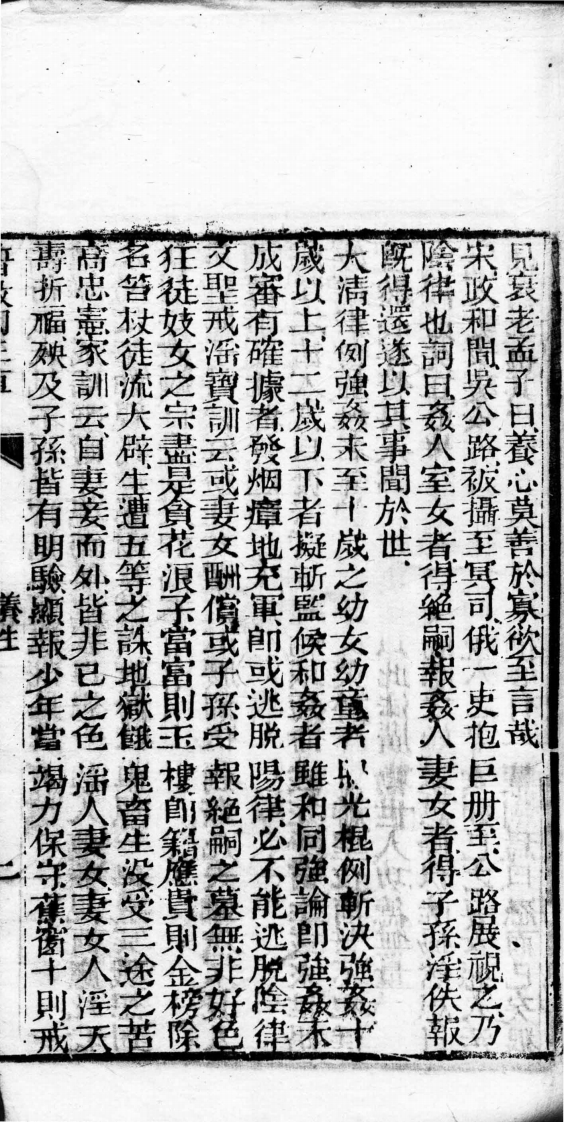 見衰老孟子曰養心莫善於寡欲至言哉
宋政和間吳公路被攝至冥司俄一吏抱巨册至公路展視之乃
陰律也詞曰姦人室女者得絶嗣報姦人妻女者得子孫淫佚報
旣得還遂以其事聞於世
大淸律例強姦未至十歲之幼女幼童者照光棍例斬決強姦十
歲以上十二歲以下者擬斬監候和姦者雖和同強論卽強姦未
成審有確據者發烟瘴地充軍卽或逃脱陽律必不能逃脱陰律
文聖戒淫寶訓云或妻女酬償或子孫受報絶嗣之墓無非好色
狂徒妓女之宗盡是貪花浪子當富則玉樓削籍應貴則金榜除
名笞杖徒流大辟生遭五等之誅地獄餓鬼畜生没受三途之苦
高忠憲家訓云自妻妾而外皆非己之色淫人妻女妻女人淫夭
壽折福殃及子孫皆有明驗顯報少年當竭力保守舊簡十則戒
養生
二